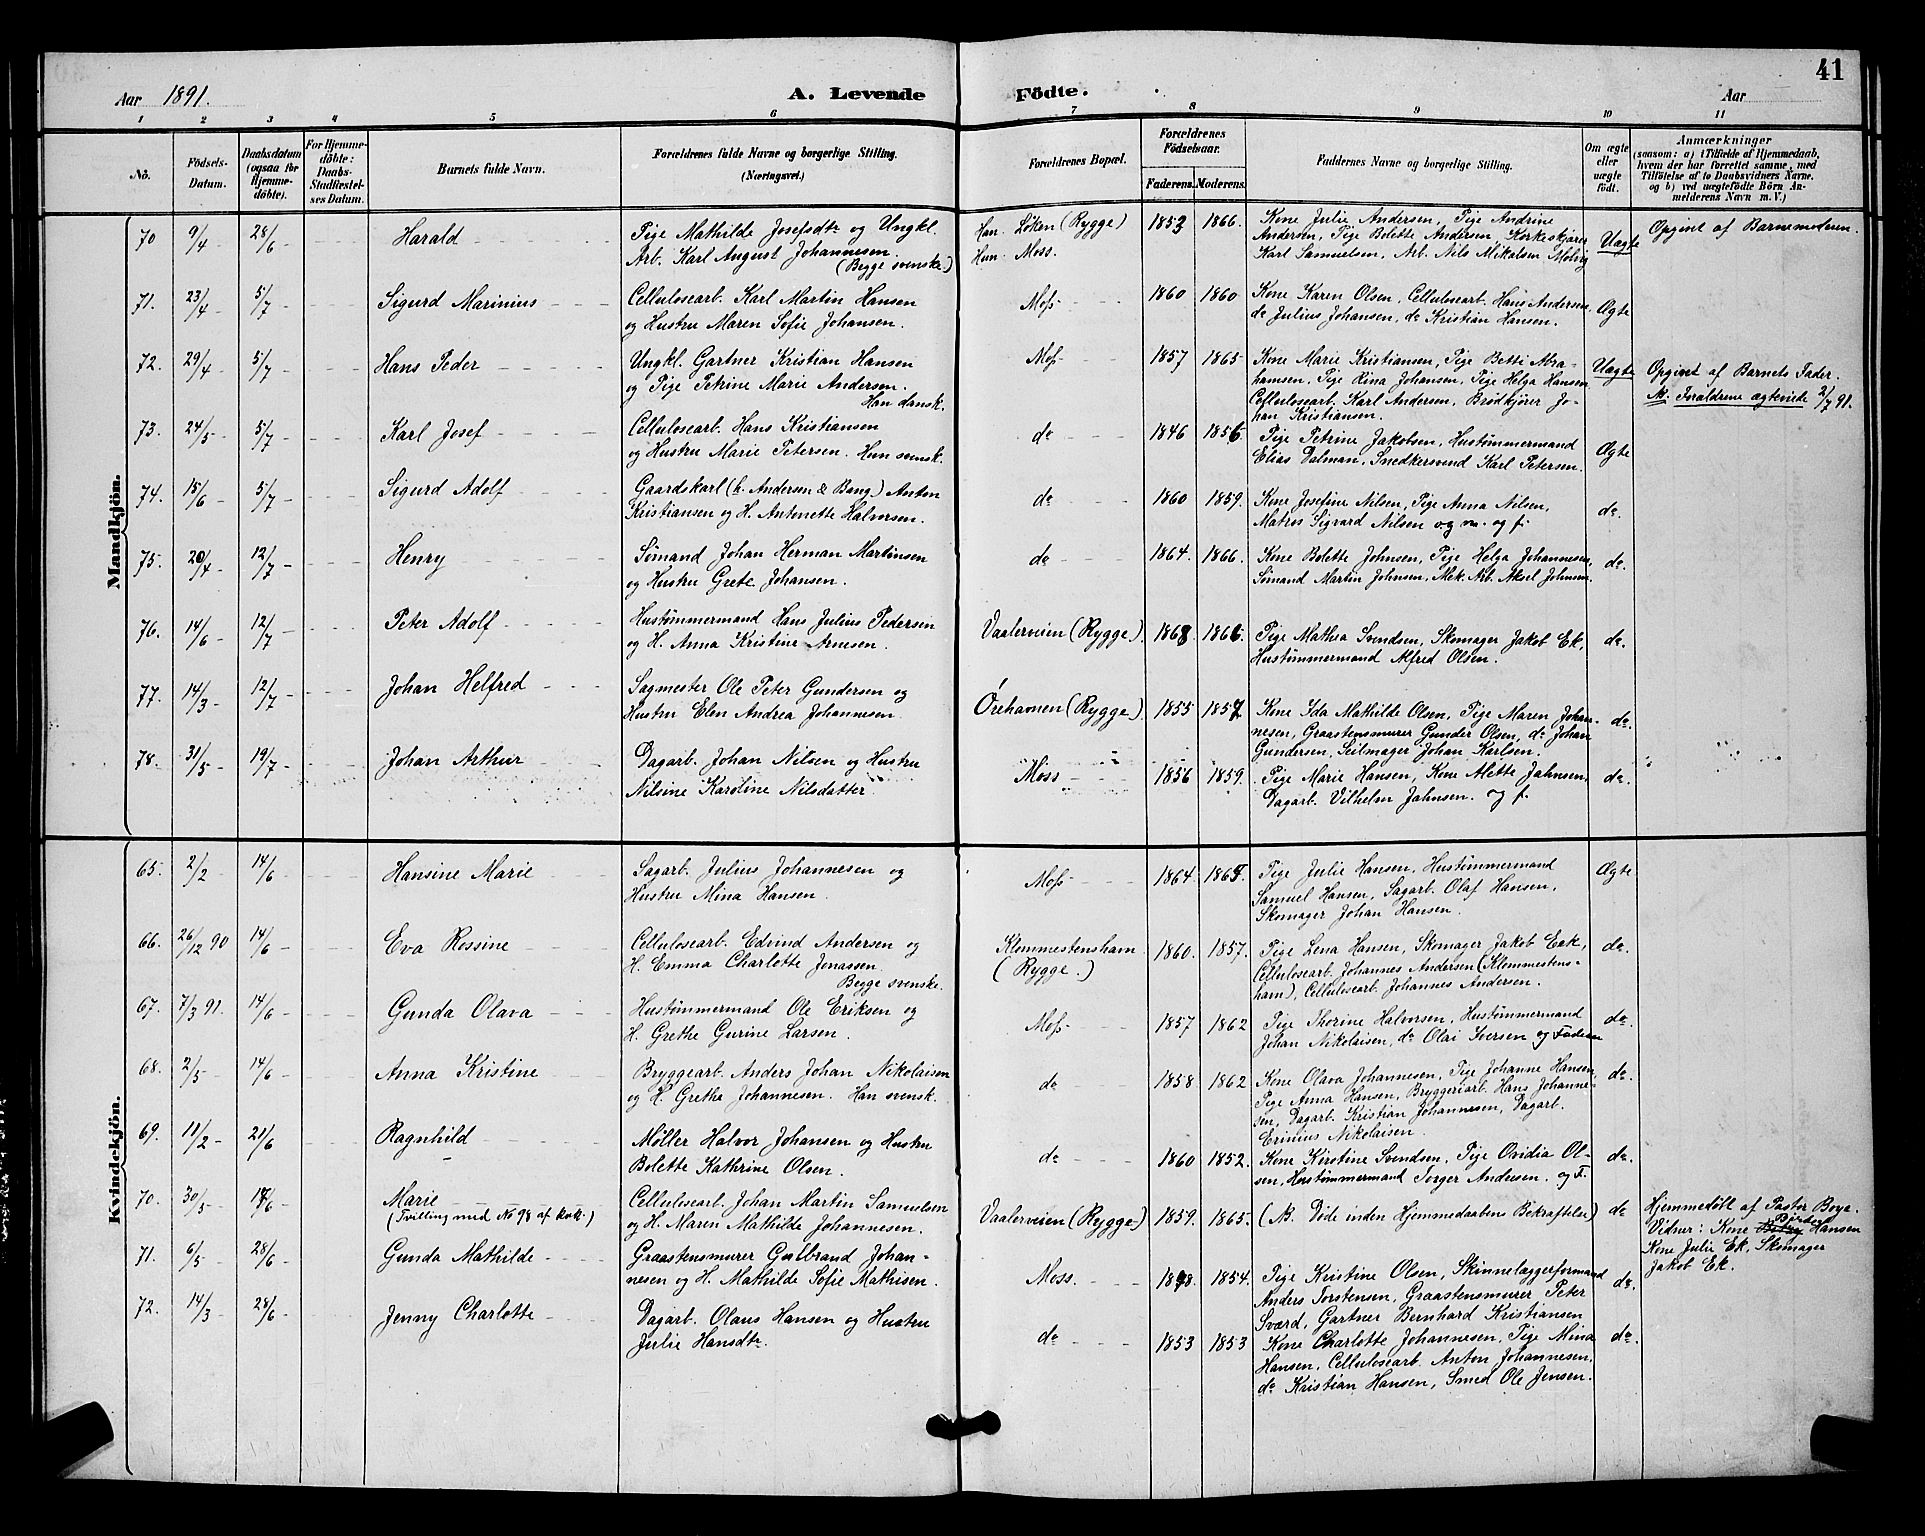 41
Aar 1891.
A. Levende Födte.
Aar
1 2 3 4 5 6 7 8 9 10 11
No.
Födsels-Datum.
Daabsdatum (ogsaa for Hjemme-döbte).
For Hjemme-döbte: Daabs-Stadfæstel-ses Datum.
Barnets fulde Navn.
Forældrenes fulde Navne og borgerlige Stilling. (Næringsvei.)
Forældrenes Bopæl.
Forældrenes Födselsaar.
Faderens. Moderens.
Faddernes Navne og borgerlige Stilling.
Om ægte eller uægte födt.
Anmærkninger
(saasom: a) i Tilfælde af Hjemmedaab, hvem der har forrettet samme, med Tilföielse af to Daabsvidners Navne, og b) ved uægtefödte Börn An-melderens Navn m. V.)
Mandkjön.
70. 9/4 28/6 Harald
Pige Mathilde Josefsdtr og Ungkl.
Arb. Karl August Johannesen.
(Begge svenske)
Han Löken (Rygge)
Hun Moss.
1853 1866.
Kone Julie Andersen, Pige Andrine
Andersen, Pige Bolette Andersen, Korkeskjærer
Karl Samuelsen, Arb. Nils Mikalsen Moberg
Uægte
Opgivet af Barnemoderen.
71. 23/4 5/7 Sigurd Marinius
Cellulosearb. Karl Martin Hansen
og Hustru Maren Sofie Johansen.
Moss
1860 1860
Kone Karen Olsen, Cellulosearb. Hans Andersen,
do Julius Johansen, do Kristian Hansen.
Ægte
72. 29/4 5/7 Hans Peder
Ungkl. Gartner Kristian Hansen
og Pige Petrine Marie Andersen.
Han dansk.
Moss
1857 1865
Kone Marie Kristiansen, Pige Betti Abra-
hamsen, Pige Rina Johansen, Pige Helga Hansen
Cellulosearb. Karl Andersen, Brödkjörer Jo-
han Kristiansen.
Uægte
Opgivet af Barnets Fader.
N. Forældrene ægteviede 2/7 91.
73. 24/5 5/7 Karl Josef
Cellulosearb. Hans Kristiansen
og Hustru Marie Petersen. Hun svensk.
do
1846 1856
Pige Petrine Jakobsen, Hustømmermand
Elias Dalman, Snedkersvend Karl Petersen.
Ægte
74. 15/6 5/7 Sigurd Adolf
Gaardskarl (h. Andersen & Bang) Anton
Kristiansen og H. Antonette Halvorsen.
do
1860 1859.
Kone Josefine Nilsen, Pige Anna Nilsen,
Matros Sigvard Nilsen og m. og f.
do.
75. 20/4 12/7 Henry
Sømand Johan Herman Martinsen
og Hustru Grete Johansen.
do
1864. 1866.
Kone Bolette Johnsen, Pige Helga Johannesen,
Sømand Martin Johnsen, Mek. Arb. Akarl Johnsen.
do.
76. 14/6 12/7 Peter Adolf
Hustømmermand Hans Julius Pedersen
og H. Anna Kristine Arnesen.
Vaalerveien (Rygge)
1868. 1866.
Pige Mathea Svendsen, Skomager Jakob Ek,
Hustømmermand Alfred Olsen.
do.
77. 14/3 12/7 Johan Helfred
Sagmester Ole Peter Gundersen og
Hustru Elen Andrea Johannesen.
Örehavnen (Rygge)
1855 1857
Kone Ida Mathilde Olsen, Pige Maren Johan-
nesen, Graastensmurer Gunder Olsen, do Johan
Gundersen, Seilmager Johan Karlsen.
do.
78. 31/5 19/7 Johan Arthur
Dagarb. Johan Nilsen og Hustru
Nilsine Karoline Nilsdatter.
Moss
1856 1859.
Pige Marie Hansen, Kone Alette Jahnsen,
Dagarb. Vilhelm Jahnsen. og f.
do.
Kvindekjön.
65. 2/2 14/6 Hansine Marie
Sagarb. Julius Johannesen og
Hustru Mina Hansen.
Moss
1864. 1868.
Pige Julie Hansen, Hustømmermand
Samuel Hansen, Sagarb. Olaf Hansen,
Skomager Johan Hansen.
Ægte
66. 26/12 90 14/6 Eva Rossine
Cellulosearb. Edvind Andersen og
H. Emma Charlotte Jonassen.
Begge svenske.
Klommestensham
(Rygge.)
1860. 1857.
Pige Lena Hansen, Skomager Jakob Eek,
Cellulosearb. Johannes Andersen (Klommestens-
ham), Cellulosearb. Johannes Andersen.
do.
67. 7/3 91. 14/6 Gunda Olava
Hustømmermand Ole Eriksen og
H. Grethe Gurine Larsen.
Moss
1857 1862
Pige Thorine Halvorsen, Hustømmermand
Johan Nikolaisen, do Olai Iversen og Faderen
do.
68. 2/5 14/6 Anna Kristine
Bryggearb. Anders Johan Nikolaisen
og H. Grethe Johannesen. Han svensk.
do
1858 1862
Kone Olava Johannesen, Pige Johanne Hansen,
Pige Anna Hansen, Bryggeriarb. Hans Johanne-
sen, Dagarb. Kristian Johannesen, Dagarb.
Erinius Nikolaisen.
do.
69. 11/2 21/6 Ragnhild
Møller Halvor Johansen og Hustru
Bolette Kathrine Olsen.
do
1860 1852.
Kone Kirstine Svendsen, Pige Ovidia Ol-
sen, Hustømmermand Torger Andersen. og F.
do.
70. 30/5 Marie
(Tvilling med No 98 af kvk.)
Cellulosearb. Johan Martin Samuelsen
og H. Maren Mathilde Johannesen.
Vaalerveien (Rygge)
1859. 1865.
(N. Döde inden Hjemmedaabens Bekræftelse)
do
Hjemmedöbt af Pastor Boye.
Vidner: Kone Hansen
Kone Julie Ek, Skomager
Jakob Ek.
71. 6/5 28/6 Gunda Mathilde
Graastensmurer Gulbrand Johan-
nesen og H. Mathilde Sofie Mathisen.
Moss.
1854.
Pige Kristine Olsen, Skinnelæggerformand
Anders Torstensen, Graastensmurer Peter
Sværd, Gartner Bernhard Kristiansen
do.
72. 14/3 28/6 Jenny Charlotte
Dagarb. Olaus Hansen og Hustru
Julie Hansdtr.
do
1853 1853
Kone Charlotte Johannesen, Pige Mina
Hansen, Cellulosearb. Anton Johannesen,
do Kristian Hansen, Smed Ole Jensen.
do.